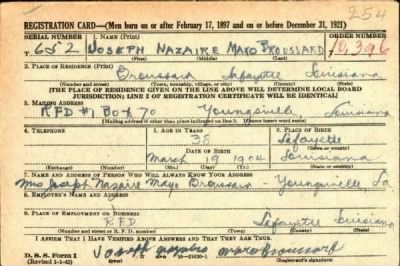 254
REGISTRATION CARD—(Men born on or after February 17, 1897 and on or before December 31, 1921)
SERIAL NUMBER 1. NAME (Print) ORDER NUMBER
T 652 JOSEPH NAZAIRE MAYO BROUSSARD 10,396
(First) (Middle) (Last)
2. PLACE OF RESIDENCE (Print)
Broussard Lafayette Louisiana
(Number and street) (Town, township, village, or city) (County) (State)
[THE PLACE OF RESIDENCE GIVEN ON THE LINE ABOVE WILL DETERMINE LOCAL BOARD
JURISDICTION; LINE 2 OF REGISTRATION CERTIFICATE WILL BE IDENTICAL]
3. MAILING ADDRESS
RFD #1 Box 70 Youngsville, Louisiana
[Mailing address if other than place indicated on line 2. If same insert word same]
4. TELEPHONE 5. AGE IN YEARS 6. PLACE OF BIRTH
38 Lafayette
DATE OF BIRTH (Town or county)
March 19 1904 Louisiana
(Exchange) (Number) (Mo.) (Day) (Yr.) (State or country)
7. NAME AND ADDRESS OF PERSON WHO WILL ALWAYS KNOW YOUR ADDRESS
Mrs Joseph Nazaire Mayo Broussard - Youngsville, La
8. EMPLOYER'S NAME AND ADDRESS
9. PLACE OF EMPLOYMENT OR BUSINESS
RFD Lafayette Louisiana
(Number and street or R. F. D. number) (Town) (County) (State)
I AFFIRM THAT I HAVE VERIFIED ABOVE ANSWERS AND THAT THEY ARE TRUE.
D. S. S. Form 1
(Revised 1-1-42) (over) 16—21630-1
(Registrant's signature)